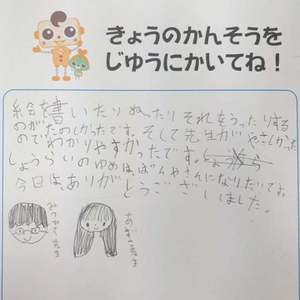 きょうのかんそうを
じゆうにかいてね！
絵を書いたりぬったりそれをうったりする
のがたのしかったです。そして先生がやさしかった
のでわかりやすかったです。
しょうらいのゆめはぱんやさんになりたいです。
今日は、ありがとうございました。
みつかく先生
あきの先生